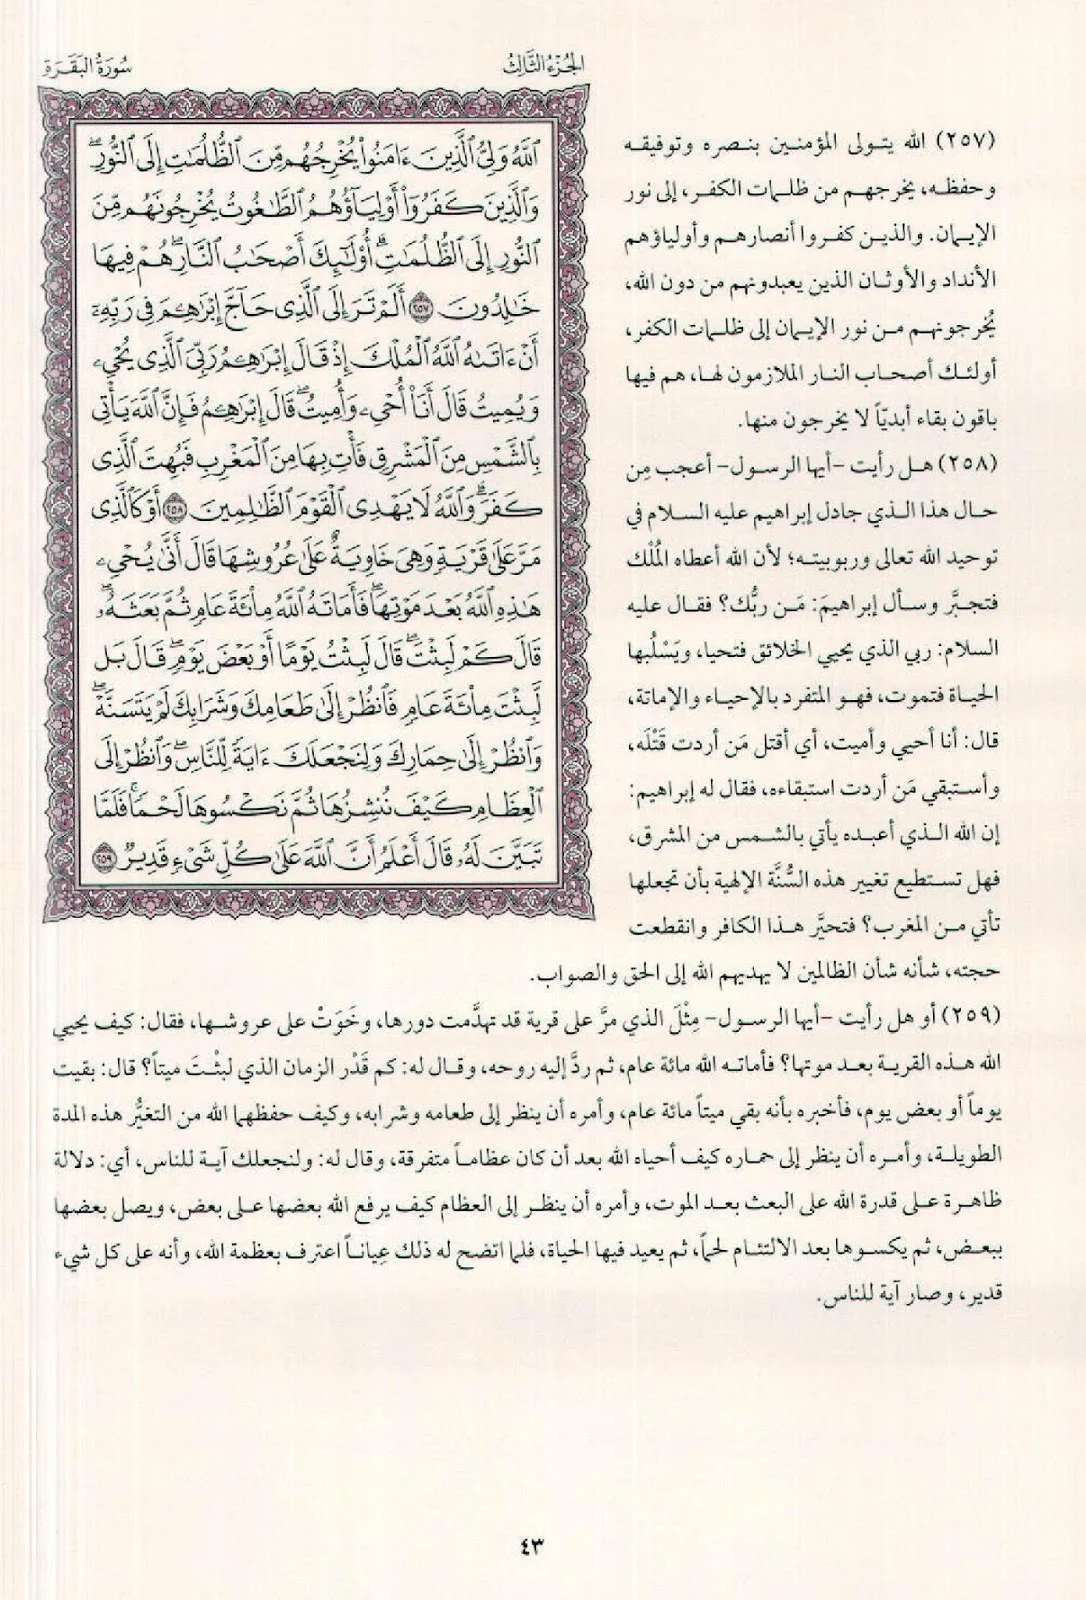 الجُزْءُ الثَّالِثُ
سُورَةُ البَقَرَةِ
ٱللَّهُ وَلِيُّ ٱلَّذِينَ ءَامَنُوا۟ يُخْرِجُهُم مِّنَ ٱلظُّلُمَٰتِ إِلَى ٱلنُّورِۖ
وَٱلَّذِينَ كَفَرُوٓا۟ أَوْلِيَآؤُهُمُ ٱلطَّٰغُوتُ يُخْرِجُونَهُم مِّنَ
ٱلنُّورِ إِلَى ٱلظُّلُمَٰتِۗ أُو۟لَٰٓئِكَ أَصْحَٰبُ ٱلنَّارِۖ هُمْ فِيهَا
خَٰلِدُونَ ٢٥٧ أَلَمْ تَرَ إِلَى ٱلَّذِى حَآجَّ إِبْرَٰهِـۧمَ فِى رَبِّهِۦٓ
أَنْ ءَاتَىٰهُ ٱللَّهُ ٱلْمُلْكَ إِذْ قَالَ إِبْرَٰهِـۧمُ رَبِّىَ ٱلَّذِى يُحْىِۦ
وَيُمِيتُ قَالَ أَنَا۠ أُحْىِۦ وَأُمِيتُۖ قَالَ إِبْرَٰهِـۧمُ فَإِنَّ ٱللَّهَ يَأْتِى
بِٱلشَّمْسِ مِنَ ٱلْمَشْرِقِ فَأْتِ بِهَا مِنَ ٱلْمَغْرِبِ فَبُهِتَ ٱلَّذِى
كَفَرَۗ وَٱللَّهُ لَا يَهْدِى ٱلْقَوْمَ ٱلظَّٰلِمِينَ ٢٥٨ أَوْ كَٱلَّذِى
مَرَّ عَلَىٰ قَرْيَةٍ وَهِىَ خَاوِيَةٌ عَلَىٰ عُرُوشِهَا قَالَ أَنَّىٰ يُحْىِۦ
هَٰذِهِ ٱللَّهُ بَعْدَ مَوْتِهَاۖ فَأَمَاتَهُ ٱللَّهُ مِا۟ئَةَ عَامٍ ثُمَّ بَعَثَهُۥۖ
قَالَ كَمْ لَبِثْتَۖ قَالَ لَبِثْتُ يَوْمًا أَوْ بَعْضَ يَوْمٍۖ قَالَ بَل
لَّبِثْتَ مِا۟ئَةَ عَامٍ فَٱنظُرْ إِلَىٰ طَعَامِكَ وَشَرَابِكَ لَمْ يَتَسَنَّهْۖ
وَٱنظُرْ إِلَىٰ حِمَارِكَ وَلِنَجْعَلَكَ ءَايَةً لِّلنَّاسِۖ وَٱنظُرْ إِلَى
ٱلْعِظَامِ كَيْفَ نُنشِزُهَا ثُمَّ نَكْسُوهَا لَحْمًاۚ فَلَمَّا
تَبَيَّنَ لَهُۥ قَالَ أَعْلَمُ أَنَّ ٱللَّهَ عَلَىٰ كُلِّ شَىْءٍ قَدِيرٌ ٢٥٩
(٢٥٧) الله يتولى المؤمنين بنصره وتوفيقه
وحفظه، يخرجهم من ظلمات الكفر، إلى نور
الإيمان. والذين كفروا أنصارهم وأولياؤهم
الأنداد والأوثان الذين يعبدونهم من دون الله،
يُخرجونهم من نور الإيمان إلى ظلمات الكفر،
أولئك أصحاب النار الملازمون لها، هم فيها
باقون بقاء أبديّاً لا يخرجون منها.
(٢٥٨) هل رأيت -أيها الرسول- أعجب مِن
حال هذا الذي جادل إبراهيم عليه السلام في
توحيد الله تعالى وربوبيته؛ لأن الله أعطاه المُلْك
فتجبَّر وسأل إبراهيمَ: مَن ربُّك؟ فقال عليه
السلام: ربي الذي يحيي الخلائق فتحيا، ويَسْلُبها
الحياة فتموت، فهو المتفرد بالإحياء والإماتة،
قال: أنا أحيي وأميت، أي أقتل مَن أردت قَتْلَه،
وأستبقي مَن أردت استبقاءه، فقال له إبراهيم:
إن الله الذي أعبده يأتي بالشمس من المشرق،
فهل تستطيع تغيير هذه السُّنَّة الإلهية بأن تجعلها
تأتي من المغرب؟ فتحيَّر هذا الكافر وانقطعت
حجته، شأنه شأن الظالمين لا يهديهم الله إلى الحق والصواب.
(٢٥٩) أو هل رأيت -أيها الرسول- مِثْلَ الذي مرَّ على قرية قد تهدَّمت دورها، وخَوَتْ على عروشها، فقال: كيف يحيي
الله هذه القرية بعد موتها؟ فأماته الله مائة عام، ثم ردَّ إليه روحه، وقال له: كم قَدْر الزمان الذي لبثْتَ ميتاً؟ قال: بقيت
يوماً أو بعض يوم، فأخبره بأنه بقي ميتاً مائة عام، وأمره أن ينظر إلى طعامه وشرابه، وكيف حفظهما الله من التغيُّر هذه المدة
الطويلة، وأمره أن ينظر إلى حماره كيف أحياه الله بعد أن كان عظاماً متفرقة، وقال له: ولنجعلك آية للناس، أي: دلالة
ظاهرة على قدرة الله على البعث بعد الموت، وأمره أن ينظر إلى العظام كيف يرفع الله بعضها على بعض، ويصل بعضها
ببعض، ثم يكسوها بعد الالتئام لحماً، ثم يعيد فيها الحياة، فلما اتضح له ذلك عِياناً اعترف بعظمة الله، وأنه على كل شيء
قدير، وصار آية للناس.
٤٣